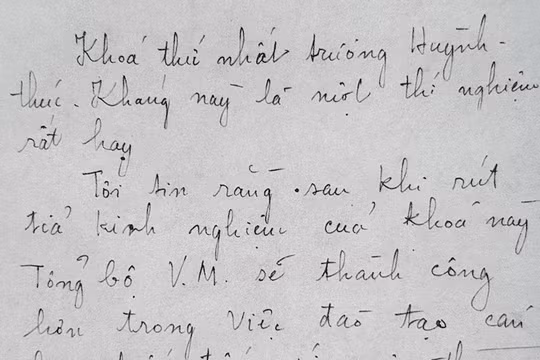 Khoá thứ nhất trường Huỳnh-
thúc-Kháng này là một thí nghiệm
rất hay
Tôi tin rằng sau khi rút
tiả kinh nghiệm cuả khoá này
Tổng bộ V.M. sẽ thành công
hơn trong việc đaò tạo cań